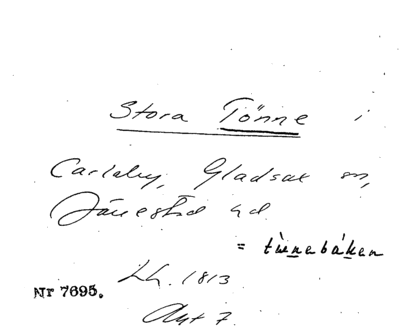 Stora Tönne i
Carlaby, Gladsax sn,
Järrestad hd
= tinnebáken
Lh. 1813
Nr 7695.
Akt 7